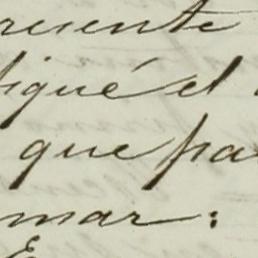 resente
fiqué el
que pa
mar: